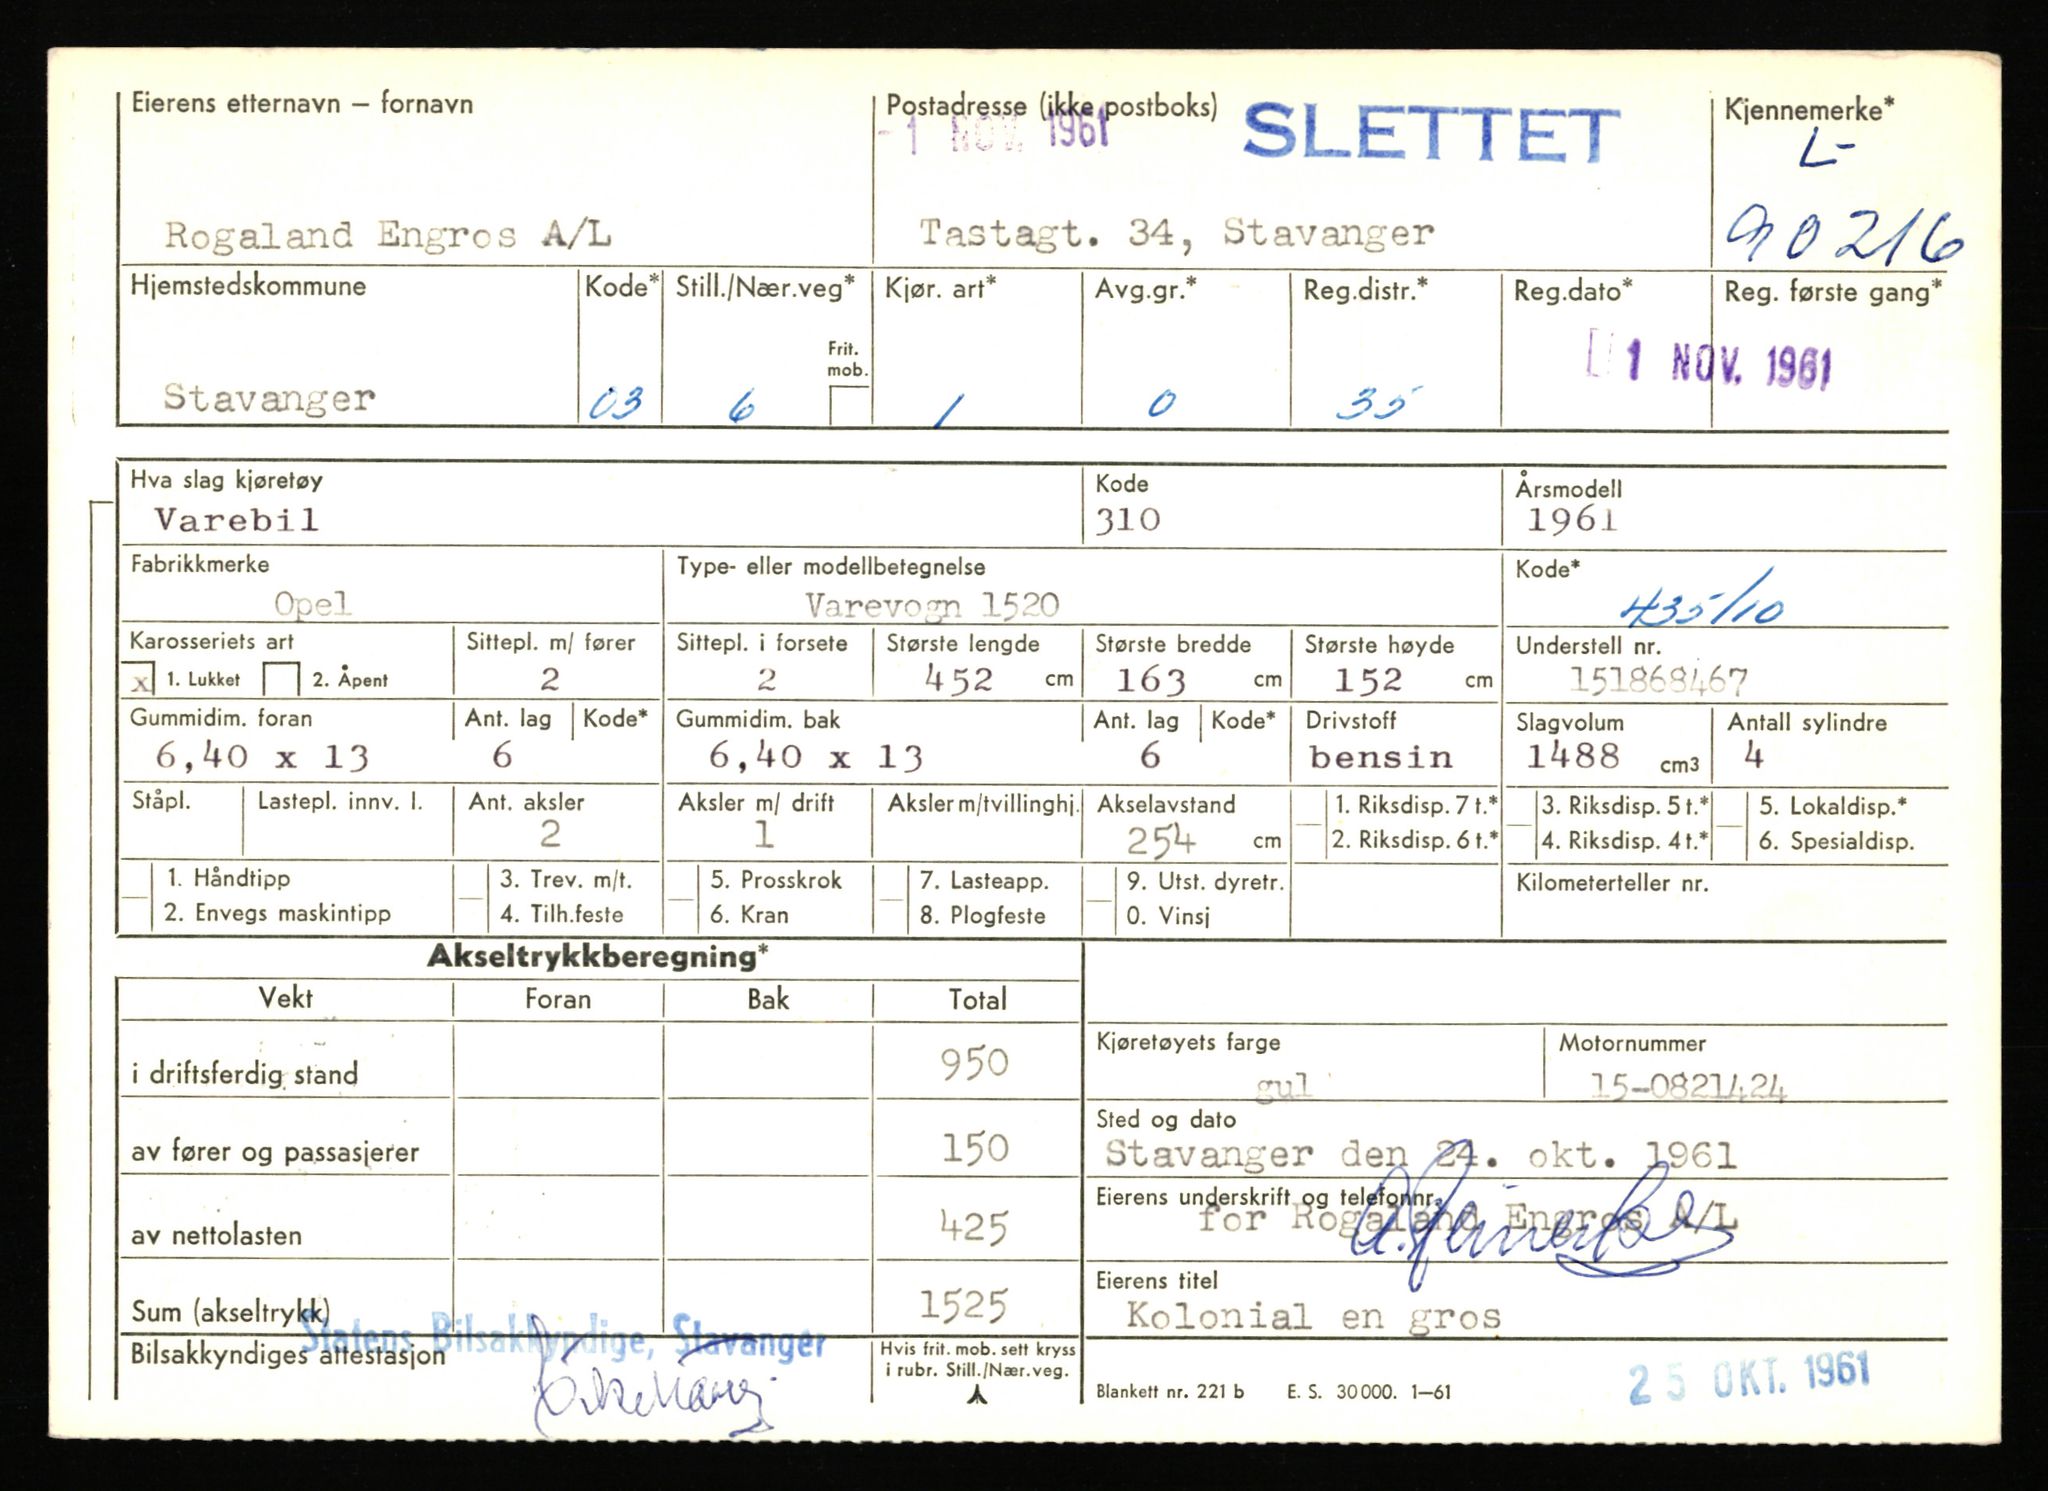 Eierens etternavn – fornavn
Postadresse (ikke postboks)
-1 NOV. 1961
SLETTET
Kjennemerke*
L-
90216
Rogaland Engros A/L
Tastagt. 34, Stavanger
Hjemstedskommune Kode* Still./Nær.veg* Kjør. art* Avg.gr.* Reg.distr.* Reg.dato* Reg. første gang*
Frit. mob.
Stavanger 03 6 1 0 35 1 NOV. 1961
Hva slag kjøretøy Kode Årsmodell
Varebil 310 1961
Fabrikkmerke Type- eller modellbetegnelse Kode*
Opel Varevogn 1520 435/10
Karosseriets art Sittepl. m/ fører Sittepl. i forsete Største lengde Største bredde Største høyde Understell nr.
x 1. Lukket 2. Åpent 2 2 452 cm 163 cm 152 cm 151868467
Gummidim. foran Ant. lag Kode* Gummidim. bak Ant. lag Kode* Drivstoff Slagvolum Antall sylindre
6,40 x 13 6 6,40 x 13 6 bensin 1488 cm3 4
Ståpl. Lastepl. innv. l. Ant. aksler Aksler m/ drift Aksler m/tvillinghj. Akselavstand 1. Riksdisp. 7 t.* 3. Riksdisp. 5 t.* 5. Lokaldisp.*
2 1 254 cm 2. Riksdisp. 6 t.* 4. Riksdisp. 4 t.* 6. Spesialdisp.
1. Håndtipp 3. Trev. m/t. 5. Prosskrok 7. Lasteapp. 9. Utst. dyretr. Kilometerteller nr.
2. Envegs maskintipp 4. Tilh.feste 6. Kran 8. Plogfeste 0. Vinsj
Akseltrykkberegning*
Vekt Foran Bak Total
i driftsferdig stand 950
av fører og passasjerer 150
av nettolasten 425
Sum (akseltrykk) 1525
Statens Bilsakkyndige, Stavanger
Bilsakkyndiges attestasjon
Hvis frit. mob. sett kryss
i rubr. Still./Nær.veg.
Kjøretøyets farge Motornummer
gul 15-0821424
Sted og dato
Stavanger den 24. okt. 1961
Eierens underskrift og telefonnr.
for Rogaland Engros A/L
Eierens titel
Kolonial en gros
Blankett nr. 221 b E. S. 30 000. 1–61
25 OKT. 1961